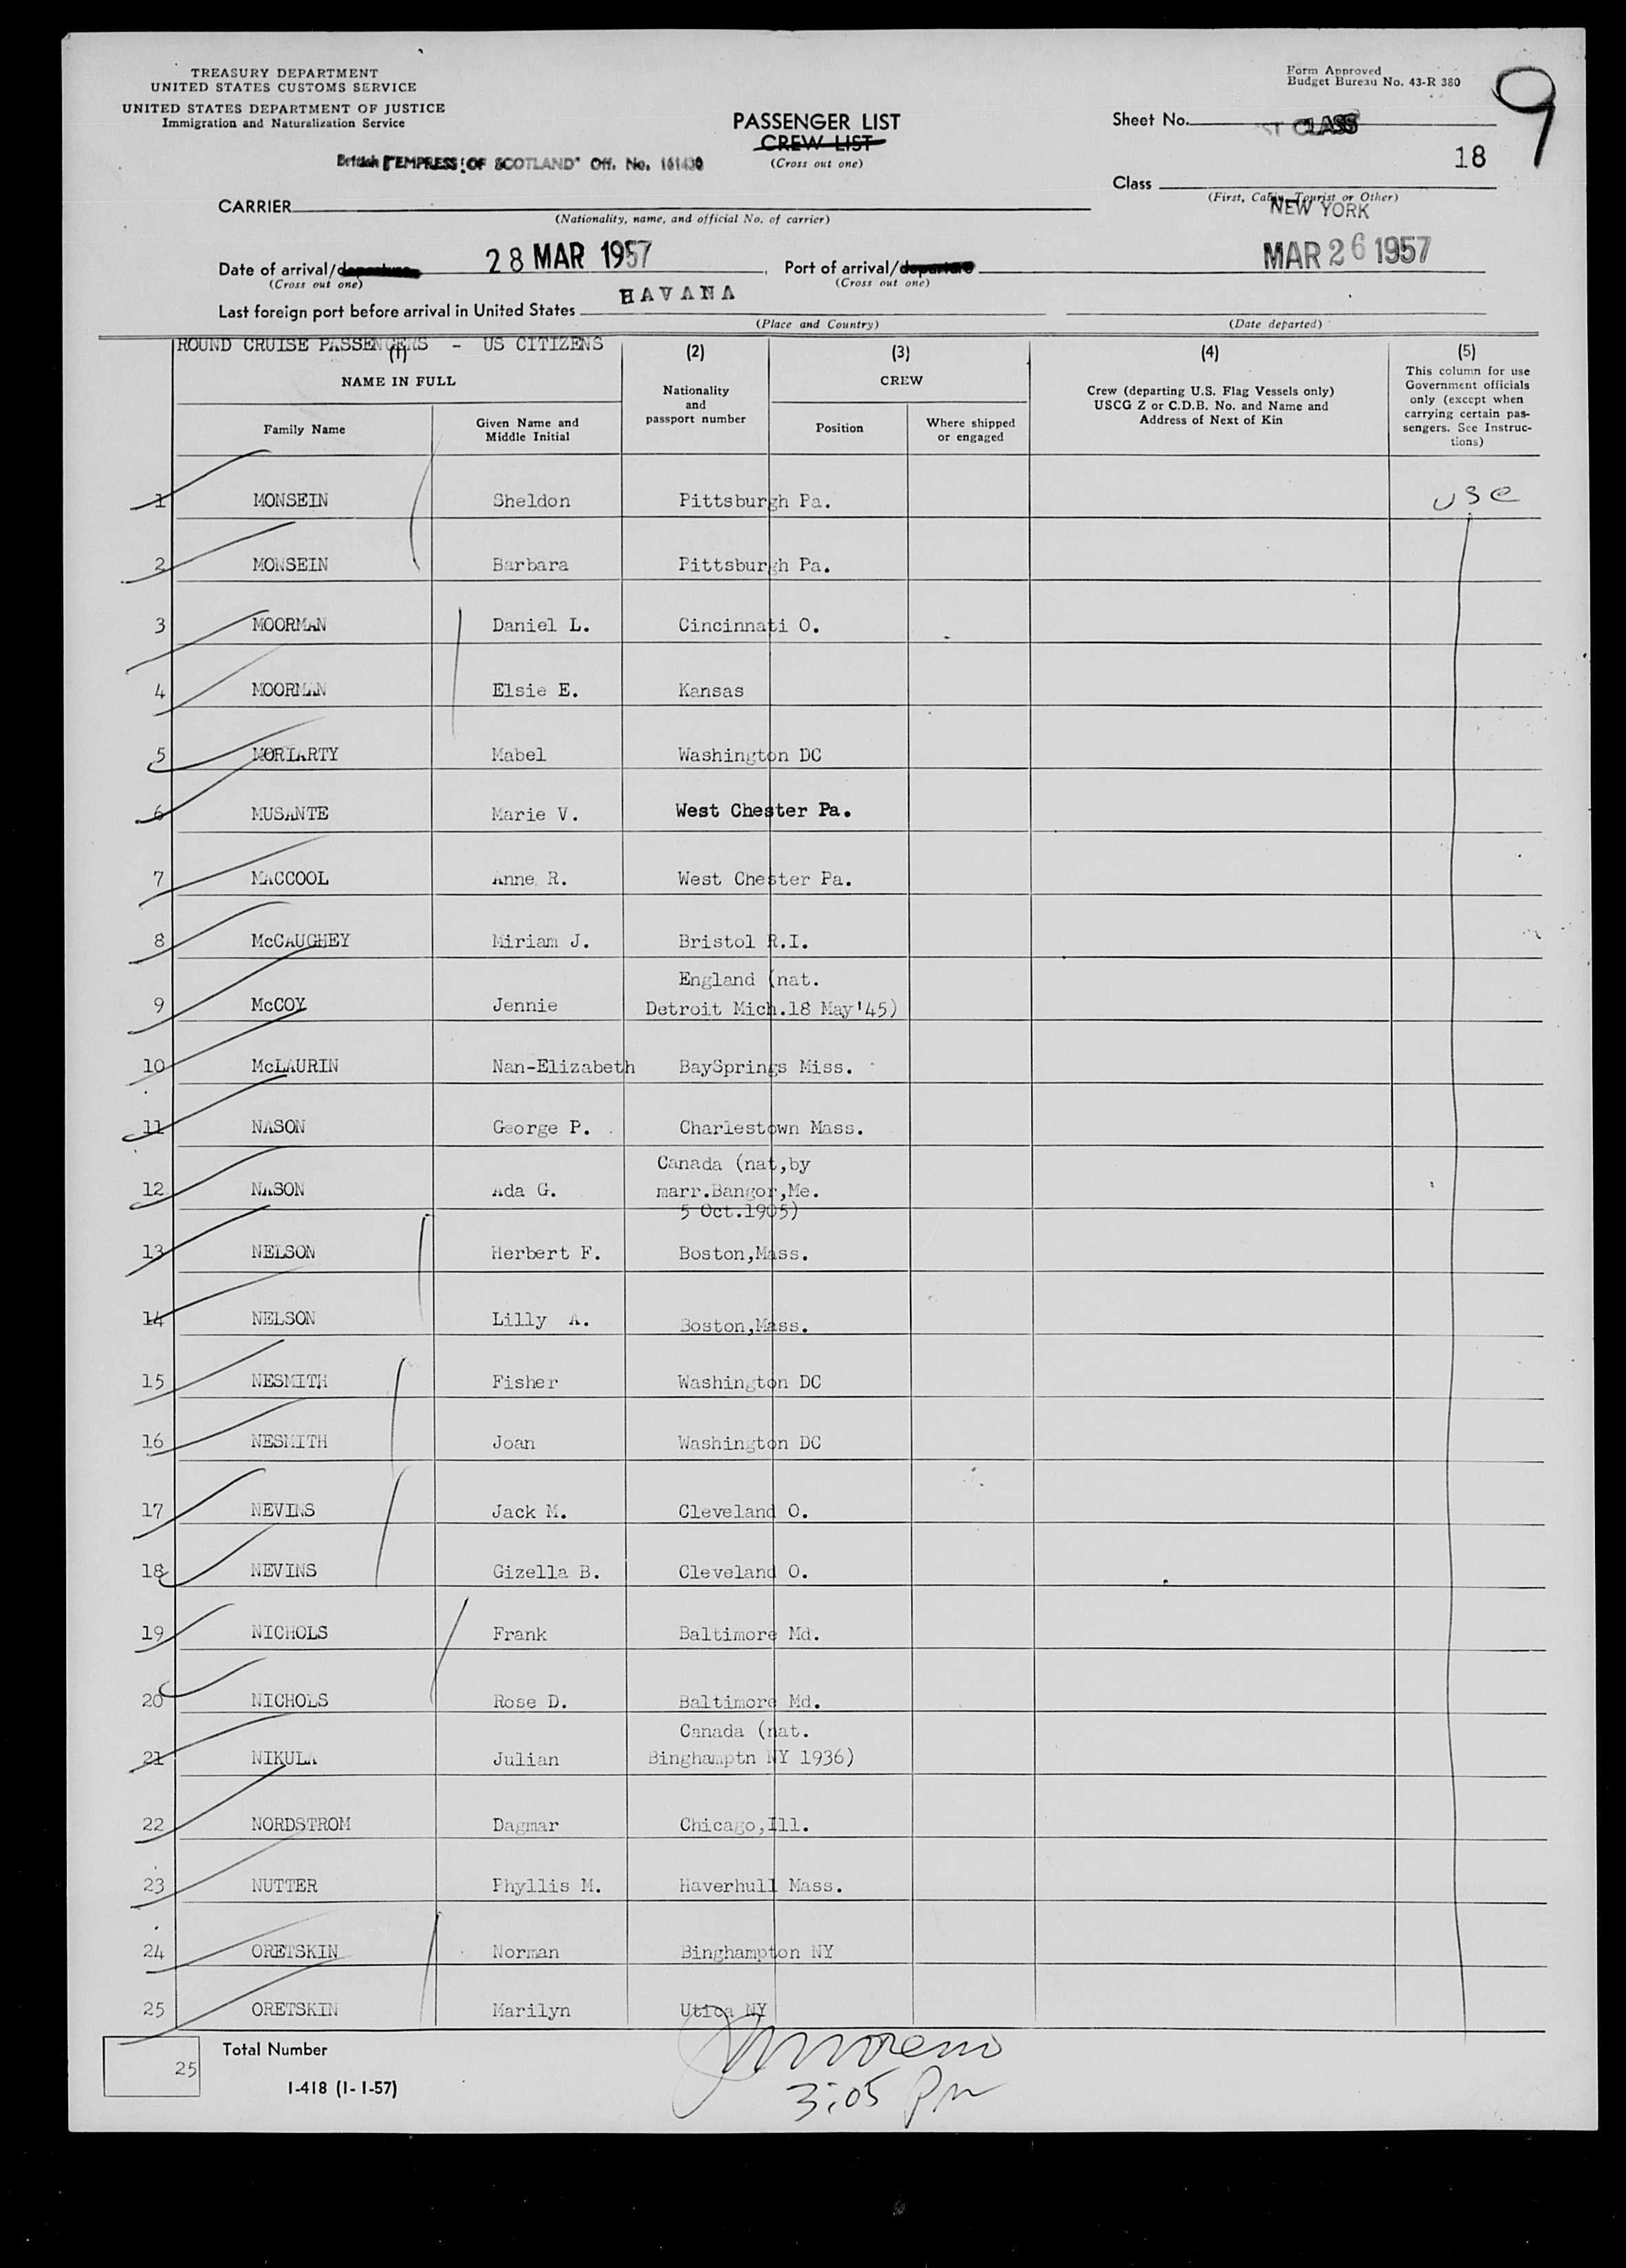 TREASURY DEPARTMENT
UNITED STATES CUSTOMS SERVICE
UNITED STATES DEPARTMENT OF JUSTICE
Immigration and Naturalization Service
Form Approved
Budget Bureau No. 43-R 380
9
PASSENGER LIST
CREW LIST
(Cross out one)
Sheet No. ST CLASS
18
British "EMPRESS OF SCOTLAND" Off. No. 161430
Class
(First, Cabin, Tourist or Other)
CARRIER
(Nationality, name, and official No. of carrier)
NEW YORK
Date of arrival/departure 28 MAR 1957, Port of arrival/departure MAR 26 1957
(Cross out one) (Cross out one)
Last foreign port before arrival in United States HAVANA
(Place and Country) (Date departed)
ROUND CRUISE PASSENGERS - US CITIZENS
(1) (2) (3) (4) (5)
NAME IN FULL
Family Name
Given Name and
Middle Initial
Nationality
and
passport number
CREW
Position
Where shipped
or engaged
Crew (departing U.S. Flag Vessels only)
USCG Z or C.D.B. No. and Name and
Address of Next of Kin
This column for use
Government officials
only (except when
carrying certain pas-
sengers. See Instruc-
tions)
1 MONSEIN Sheldon Pittsburgh Pa. usc
2 MONSEIN Barbara Pittsburgh Pa.
3 MOORMAN Daniel L. Cincinnati O.
4 MOORMAN Elsie E. Kansas
5 MORIARTY Mabel Washington DC
6 MUSANTE Marie V. West Chester Pa.
7 MACCOOL Anne R. West Chester Pa.
8 McCAUGHEY Miriam J. Bristol R.I.
England (nat.
9 McCOY Jennie Detroit Mich.18 May'45)
10 McLAURIN Nan-Elizabeth BaySprings Miss.
11 NASON George P. Charlestown Mass.
Canada (nat,by
12 NASON Ada G. marr.Bangor,Me.
5 Oct.1905)
13 NELSON Herbert F. Boston,Mass.
14 NELSON Lilly A. Boston,Mass.
15 NESMITH Fisher Washington DC
16 NESMITH Joan Washington DC
17 NEVINS Jack M. Cleveland O.
18 NEVINS Gizella B. Cleveland O.
19 NICHOLS Frank Baltimore Md.
20 NICHOLS Rose D. Baltimore Md.
Canada (nat.
21 NIKULA Julian Binghamptn NY 1936)
22 NORDSTROM Dagmar Chicago,Ill.
23 NUTTER Phyllis M. Haverhull Mass.
24 ORETSKIN Norman Binghampton NY
25 ORETSKIN Marilyn Utica NY
25 Total Number
I-418 (1-1-57)
3:05 pm